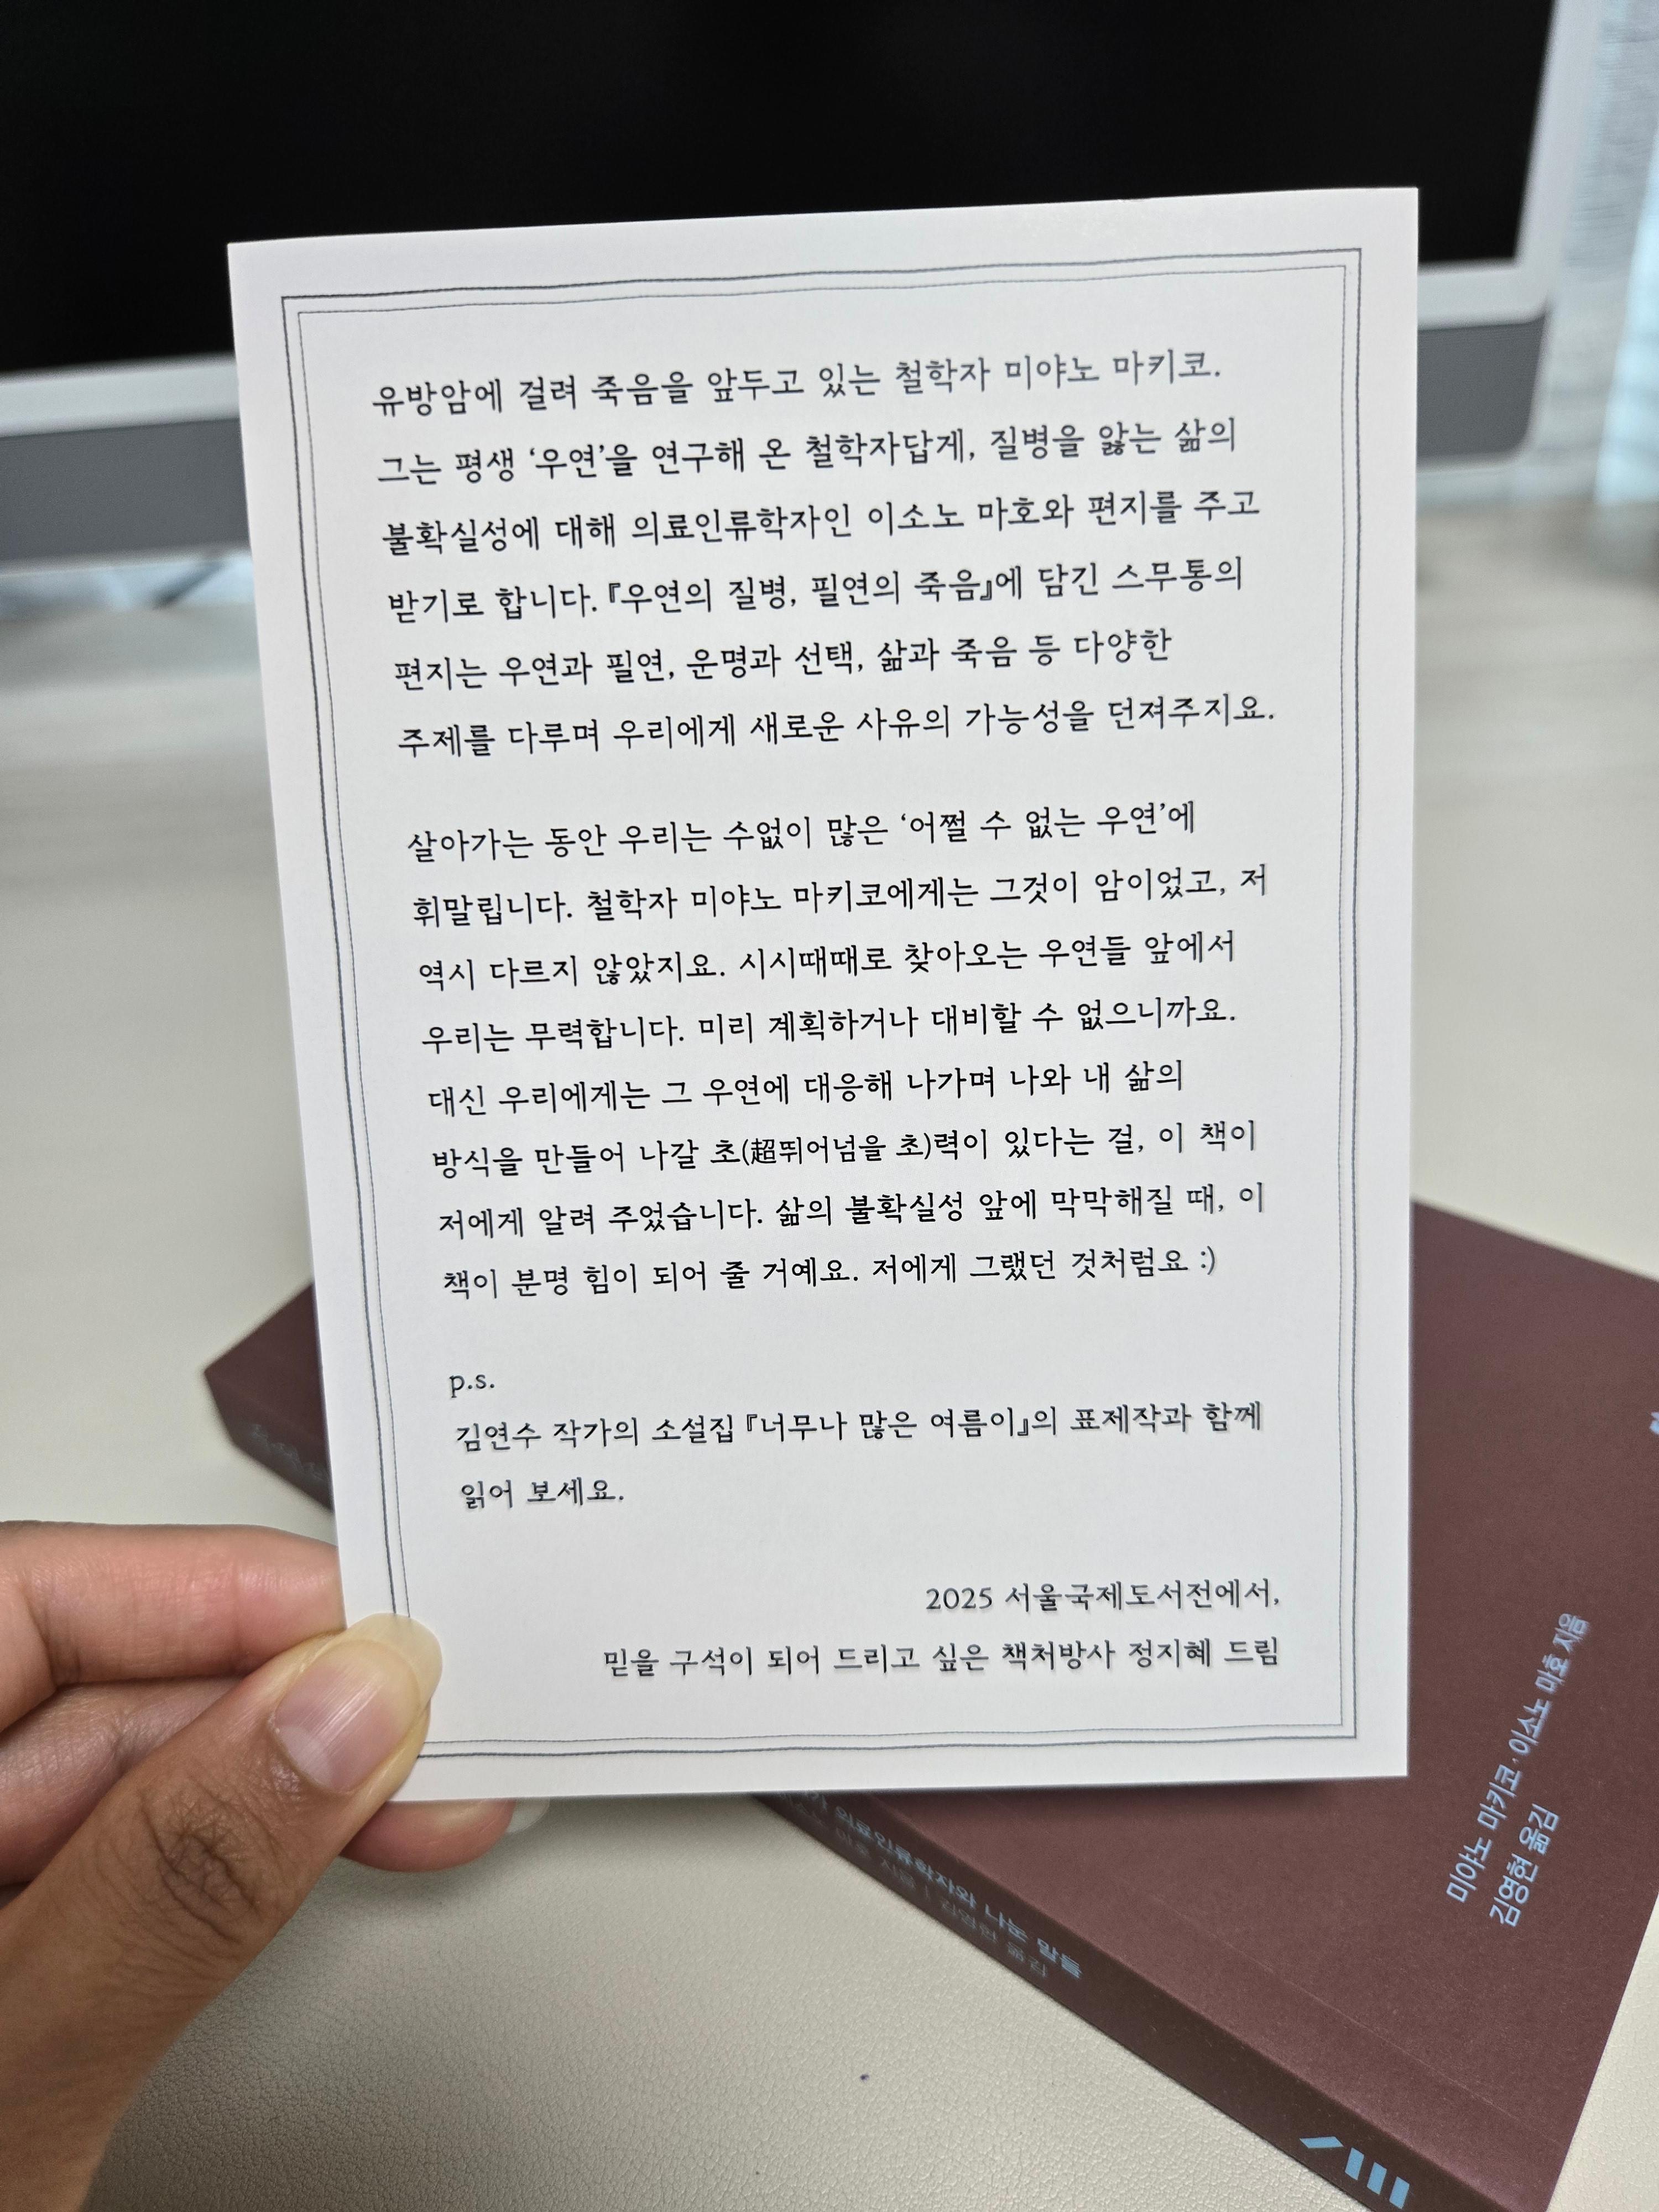 유방암에 걸려 죽음을 앞두고 있는 철학자 미야노 마키코.
그는 평생 ‘우연’을 연구해 온 철학자답게, 질병을 앓는 삶의
불확실성에 대해 의료인류학자인 이소노 마호와 편지를 주고
받기로 합니다.『우연의 질병, 필연의 죽음』에 담긴 스무통의
편지는 우연과 필연, 운명과 선택, 삶과 죽음 등 다양한
주제를 다루며 우리에게 새로운 사유의 가능성을 던져주지요.
살아가는 동안 우리는 수없이 많은 ‘어쩔 수 없는 우연’에
휘말립니다. 철학자 미야노 마키코에게는 그것이 암이었고, 저
역시 다르지 않았지요. 시시때때로 찾아오는 우연들 앞에서
우리는 무력합니다. 미리 계획하거나 대비할 수 없으니까요.
대신 우리에게는 그 우연에 대응해 나가며 나와 내 삶의
방식을 만들어 나갈 초(超뛰어넘을 초)력이 있다는 걸, 이 책이
저에게 알려 주었습니다. 삶의 불확실성 앞에 막막해질 때, 이
책이 분명 힘이 되어 줄 거예요. 저에게 그랬던 것처럼요 :)
p.s.
김연수 작가의 소설집『너무나 많은 여름이』의 표제작과 함께
읽어 보세요.
2025 서울국제도서전에서,
믿을 구석이 되어 드리고 싶은 책처방사 정지혜 드림
미야노 마키코·이소노 마호 지음
김영현 옮김
의료인류학자와 나눈 말들
마호 지음 | 김영현 옮김